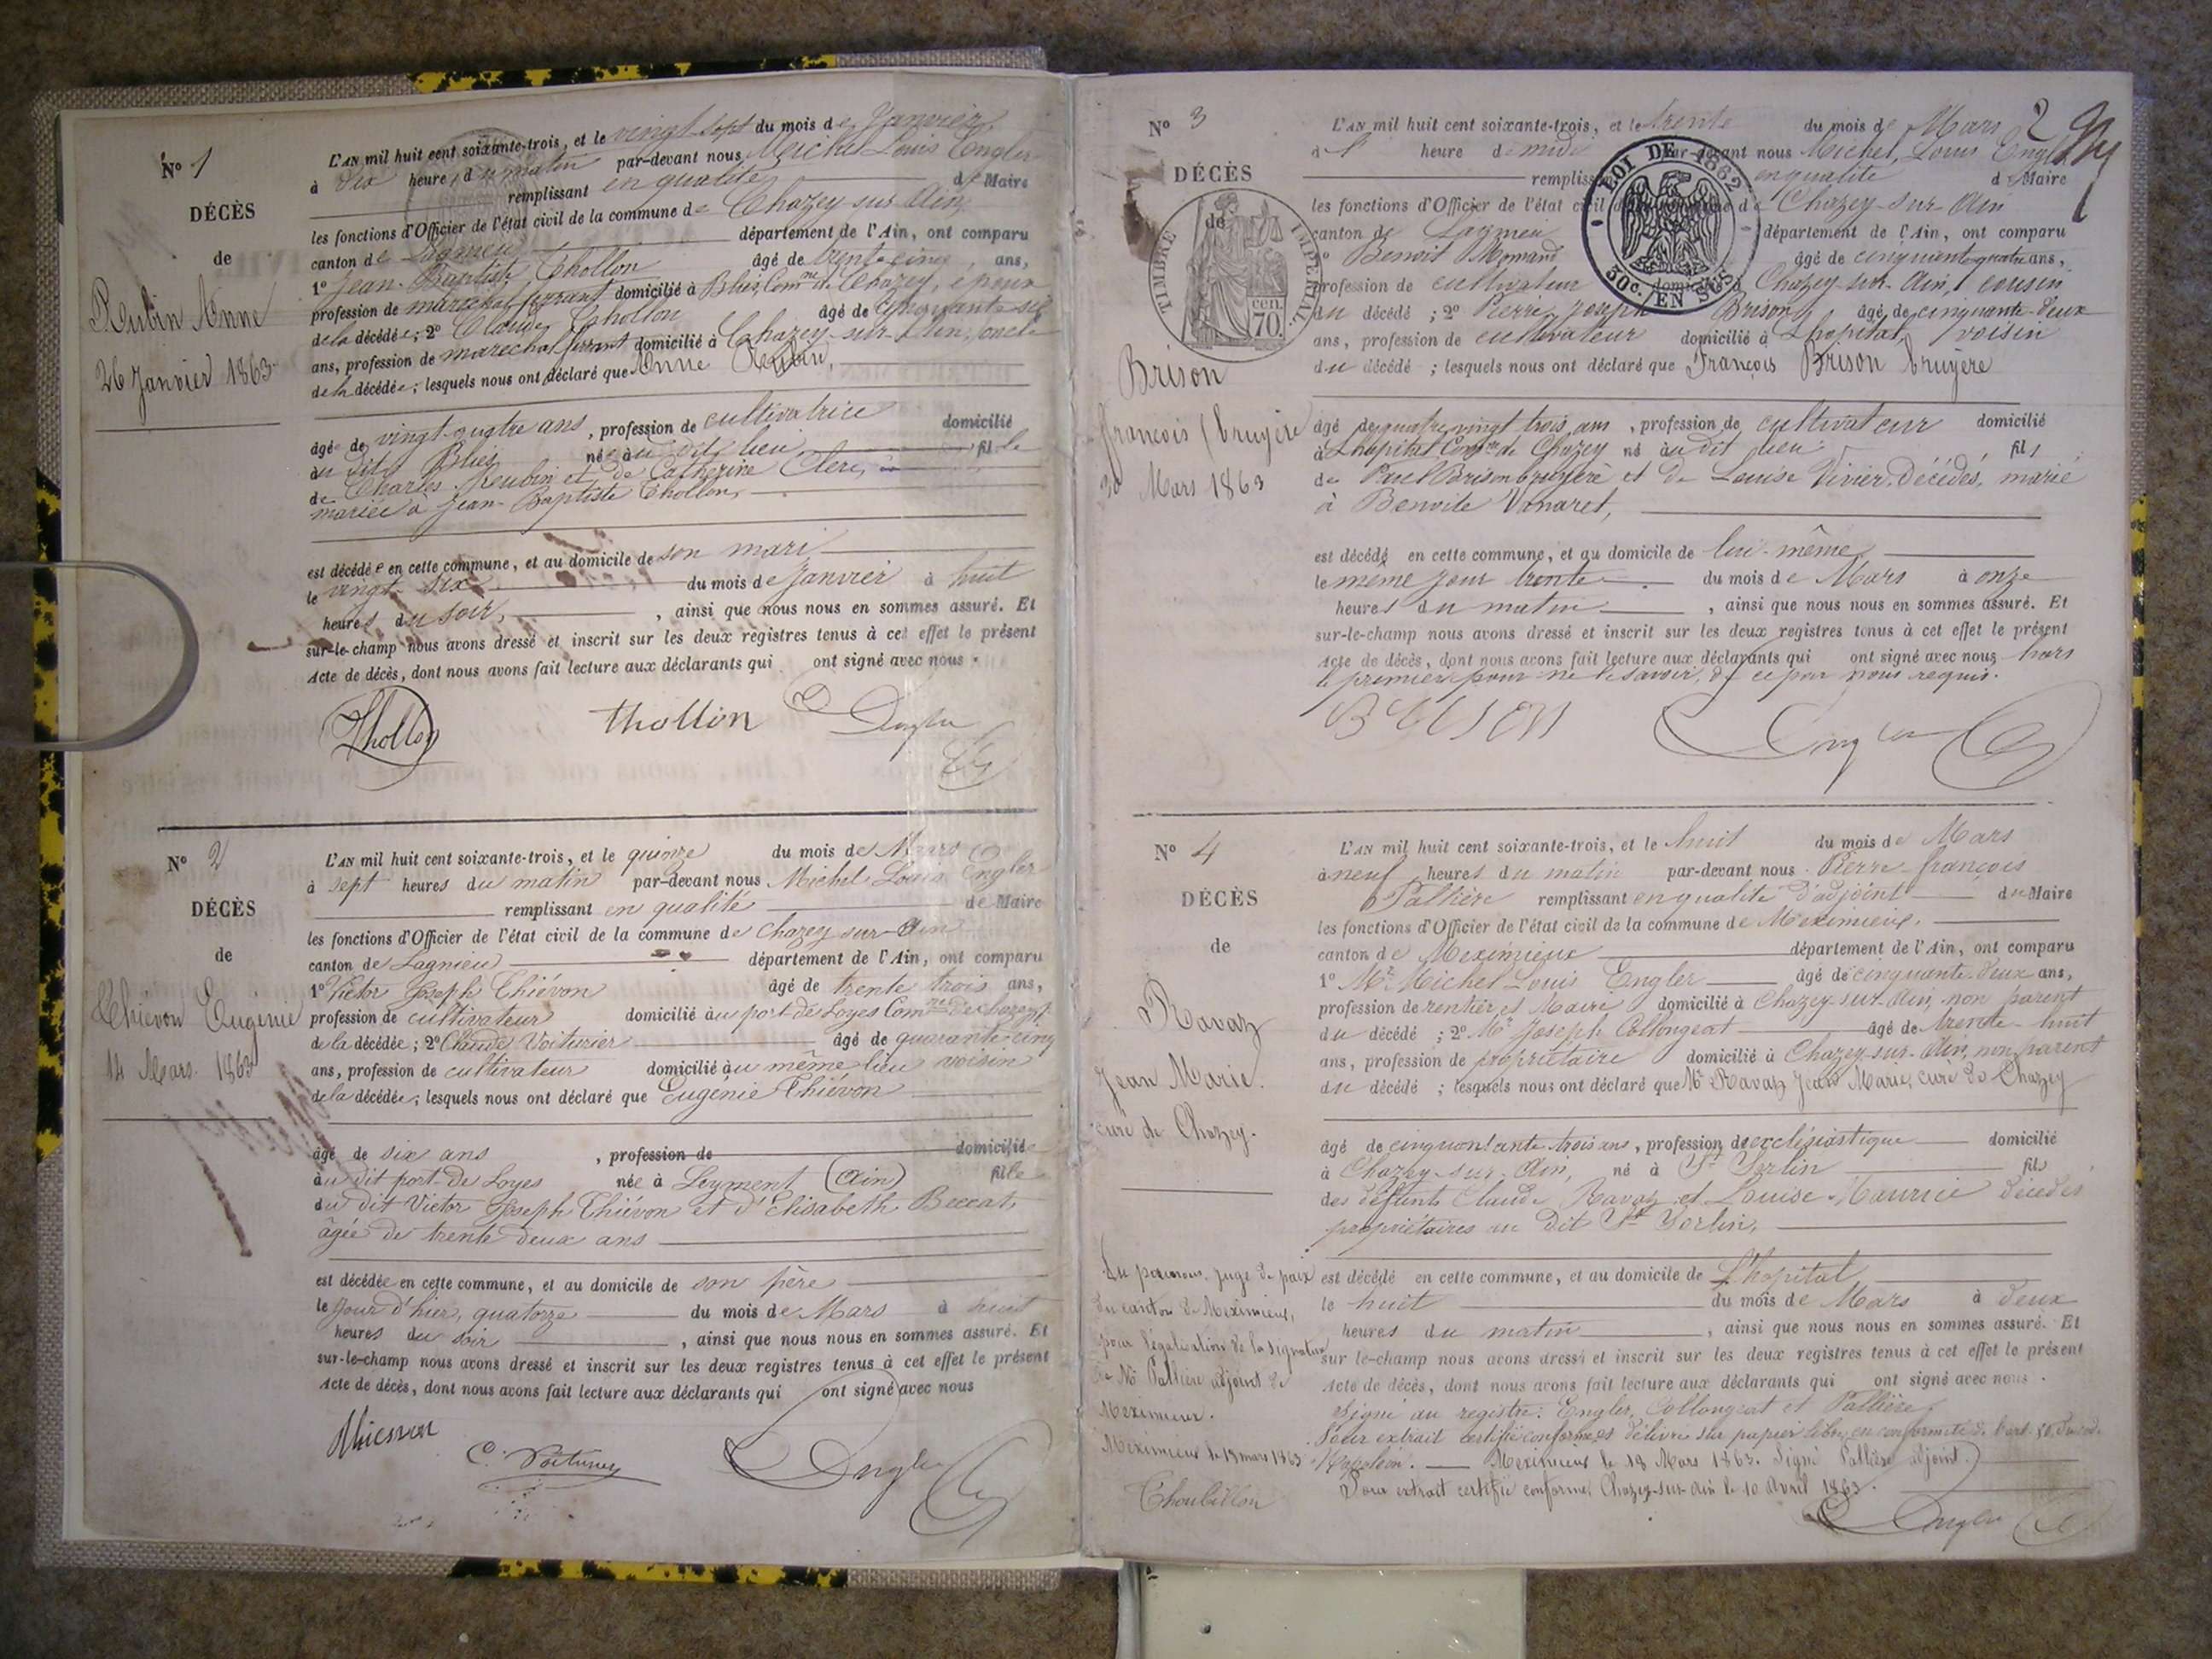 N° 1
DÉCÈS
de
Reubin Anne
26 Janvier 1863
L'AN mil huit cent soixante-trois, et le vingt sept du mois de Janvier
à dix heures du matin par-devant nous Michel Louis Engler
remplissant en qualité de Maire
les fonctions d'Officier de l'état civil de la commune de Chazey sur Ain
canton de Lagnieu département de l'Ain, ont comparu
1° Jean-Baptiste Thollon âgé de trente cinq ans,
profession de maréchal ferrant domicilié à Blies, Com.ne de Chazey, époux
de la décédée; 2° Claude Thollon âgé de cinquante six
ans, profession de marechal ferrant domicilié à Chazey-sur-Ain, oncle
de la décédée; lesquels nous ont déclaré que Anne Reubin,
âgée de vingt-quatre ans, profession de cultivatrice domicilié
au dit Blies née au dit lieu fille
de Charles Reubin et de Catherine Clerc,
mariée à Jean-Baptiste Thollon,
est décédée en cette commune, et au domicile de son mari
le vingt six du mois de Janvier à huit
heures du soir, , ainsi que nous nous en sommes assuré. Et
sur-le-champ nous avons dressé et inscrit sur les deux registres tenus à cet effet le présent
Acte de décès, dont nous avons fait lecture aux déclarants qui ont signé avec nous.
Thollon thollon Engler
N° 2
DÉCÈS
de
Thiévon Eugénie
14 Mars 1863
L'AN mil huit cent soixante-trois, et le quinze du mois de Mars
à sept heures du matin par-devant nous Michel Louis Engler
remplissant en qualité de Maire
les fonctions d'Officier de l'état civil de la commune de Chazey-sur-Ain
canton de Lagnieu département de l'Ain, ont comparu
1° Victor Joseph Thiévon âgé de trente trois ans,
profession de cultivateur domicilié au port de Loyes Com.ne de Chazey,
de la décédée; 2° Claude Voiturier âgé de quarante cinq
ans, profession de cultivateur domicilié au même lieu voisin
de la décédée; lesquels nous ont déclaré que Eugénie Thiévon
âgé de six ans , profession de domicilié
au dit port de Loyes née à Leyment (Ain) fille
du dit Victor Joseph Thiévon et d'Elisabeth Beccat,
âgée de trente deux ans
est décédée en cette commune, et au domicile de son père
le jour d'hier, quatorze du mois de Mars à huit
heures du soir , ainsi que nous nous en sommes assuré. Et
sur-le-champ nous avons dressé et inscrit sur les deux registres tenus à cet effet le présent
Acte de décès, dont nous avons fait lecture aux déclarants qui ont signé avec nous
C. Voiturier Engler
2
N° 3
DÉCÈS
de
TIMBRE IMPERIAL
70 cen.
Brison
françois bruyère
30 Mars 1863
LOI DE 1862
50c. EN SUS
L'AN mil huit cent soixante-trois, et le trente du mois de Mars
à 1 heure de midi par-devant nous Michel, Louis Engler
remplissant en qualité de Maire
les fonctions d'Officier de l'état civil de la commune de Chazey-sur-Ain
canton de Lagnieu département de l'Ain, ont comparu
1° Benoit Momand âgé de cinquante quatre ans,
profession de cultivateur domicilié à Chazey-sur-Ain, cousin
du décédé; 2° Pierre Joseph Brison, âgé de cinquante-deux
ans, profession de cultivateur domicilié à L'hopital, voisin
du décédé; lesquels nous ont déclaré que François Brison bruyère
âgé de quatre vingt trois ans, profession de cultivateur domicilié
à L'hopital Com.ne de Chazey né au dit lieu fils
de Paul Brison bruyère et De Louise Vivier, décédés, marié
à Benoite Vanaret,
est décédé en cette commune, et au domicile de lui-même,
le même jour trente du mois de Mars à onze
heures du matin , ainsi que nous nous en sommes assuré. Et
sur-le-champ nous avons dressé et inscrit sur les deux registres tenus à cet effet le présent
Acte de décès, dont nous avons fait lecture aux déclarants qui ont signé avec nous hors
le premier pour ne le savoir, de ce par nous requis.
BRISON Engler
N° 4
DÉCÈS
de
Ravaz
Jean Marie.
curé de Chazey.
L'AN mil huit cent soixante-trois, et le huit du mois de Mars
à neuf heures du matin par-devant nous Pierre françois
Pallière remplissant en qualité d'adjoint du Maire
les fonctions d'Officier de l'état civil de la commune de Meximieux,
canton de Meximieux département de l'Ain, ont comparu
1° Mr Michel Louis Engler âgé de cinquante-deux ans,
profession de rentier et Maire domicilié à Chazey-sur-Ain, non parent
du décédé; 2° Mr Joseph Collongeat âgé de trente-huit
ans, profession de propriétaire domicilié à Chazey-sur-Ain, non parent
du décédé; lesquels nous ont déclaré que Mr Ravaz Jean Marie, curé de Chazey
âgé de cinquantante trois ans, profession de ecclésiastique domicilié
à Chazey-sur-Ain, né à St Sorlin fils
des défunts Claude Ravaz et Louise Maurice décédés
propriétaires au Dit St Sorlin,
est décédé en cette commune, et au domicile de L'hopital
le huit du mois de Mars à deux
heures du matin , ainsi que nous nous en sommes assuré. Et
sur le-champ nous avons dressé et inscrit sur les deux registres tenus à cet effet le présent
Acte de décès, dont nous avons fait lecture aux déclarants qui ont signé avec nous.
Signé au registre: Engler, Collongeat et Pallière,
Pour extrait certifié conforme et délivré sur papier libre, en conformité de l'art. 80 du code
Napoléon. Meximieux le 18 Mars 1863. Signé Pallière adjoint.
Pour extrait certifié conforme, Chazey-sur-Ain le 10 Avril 1863.
Engler
juge de paix
du canton de Meximieux,
pour légalisation de la signature
de Mr Pallière adjoint de
Meximieux.
Meximieux le 19 mars 1863
Thoubillon